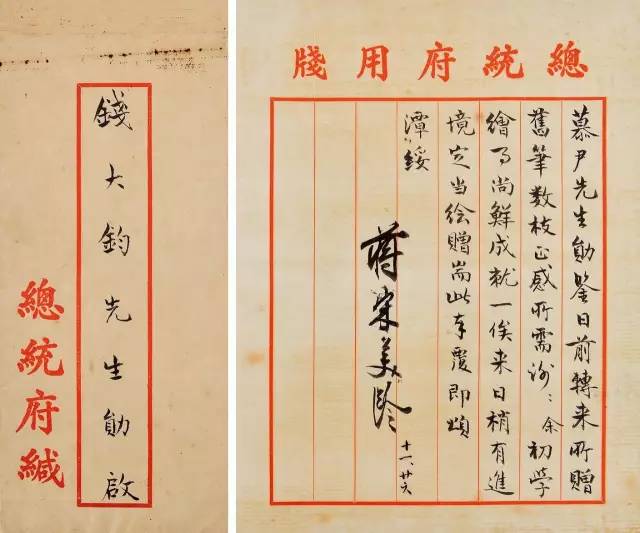 錢大鈞先生勛啟
總統府緘
總統府用牋
慕尹先生勛鑒日前轉来所贈
舊筆数枝正感所需謝〻余初学
繪事尚鮮成就一俟来日稍有進
境定当绘贈耑此奉覆即頌
潭綏
蔣宋美齡
十一、廿六